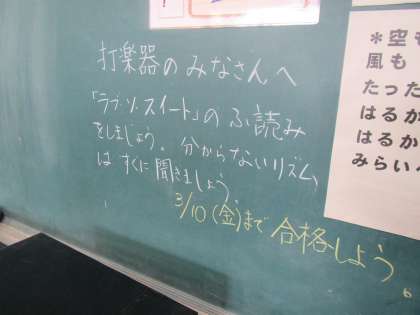 打楽器のみなさんへ
「ラブ・ソ・スイート」のふ読み
をしましょう。分からないリズム
はすぐに聞きましょう
3/10(金)まで合格しよう。
*空も
風も
たった
はるか
はるか
みらい